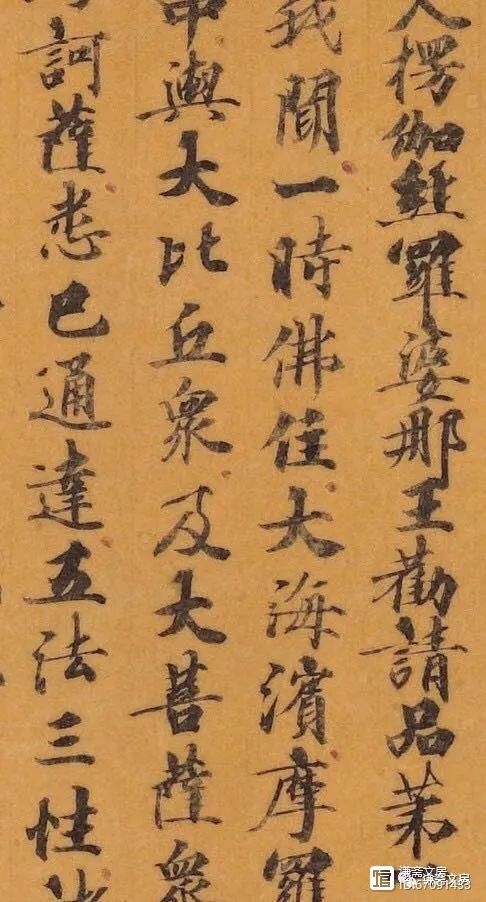 入楞伽經羅婆那王勸請品第
我聞一時佛住大海濱摩羅
中與大比丘眾及大菩薩眾
訶薩悉已通達五法三性
謙斋文房
ID:67091433